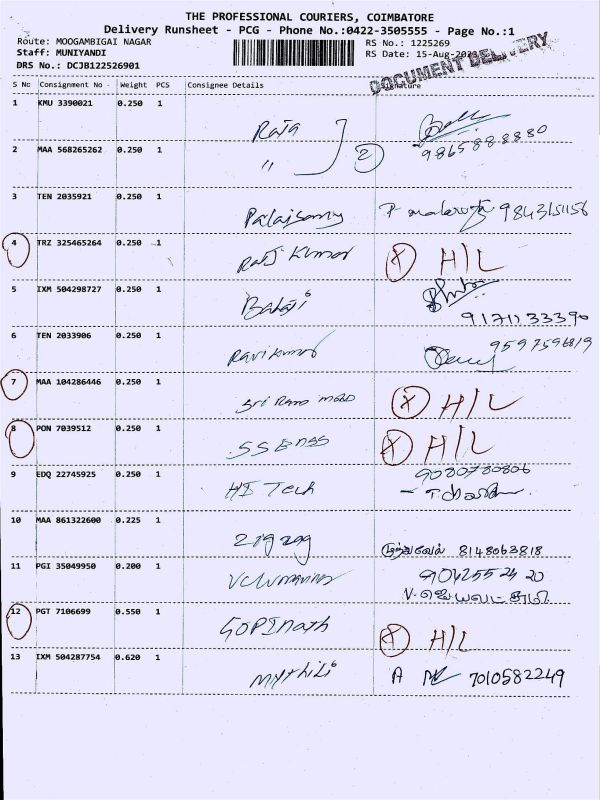 THE PROFESSIONAL COURIERS, COIMBATORE
Delivery Runsheet - PCG - Phone No.:0422-3505555 - Page No.:1
Route: MOOGAMBIGAI NAGAR RS No.: 1225269
Staff: MUNIYANDI RS Date: 15-Aug-2023
DRS No.: DCJB122526901
DOCUMENT DELIVERY
S No Consignment No Weight PCS Consignee Details Signature
1 KMU 3390021 0.250 1 Raja
9865888880
2 MAA 568265262 0.250 1 〃 2
3 TEN 2035921 0.250 1 Palaisamy 9843151156
4 TRZ 325465264 0.250 1 Raj Kumar X H/L
5 IXM 504298727 0.250 1 Balaji
9171133390
6 TEN 2033906 0.250 1 Ravikumar 9597596819
7 MAA 104286446 0.250 1 Sri Ram X H/L
8 PON 7039512 0.250 1 X H/L
9 EDQ 22745925 0.250 1 HI Tech 9080780806
10 MAA 861322600 0.225 1 Zigzag முத்துவேல் 8148063818
11 PGI 35049950 0.200 1 9042552420
12 PGT 7106699 0.550 1 GOPINath X H/L
13 IXM 504287754 0.620 1 Mythili A 7010582249